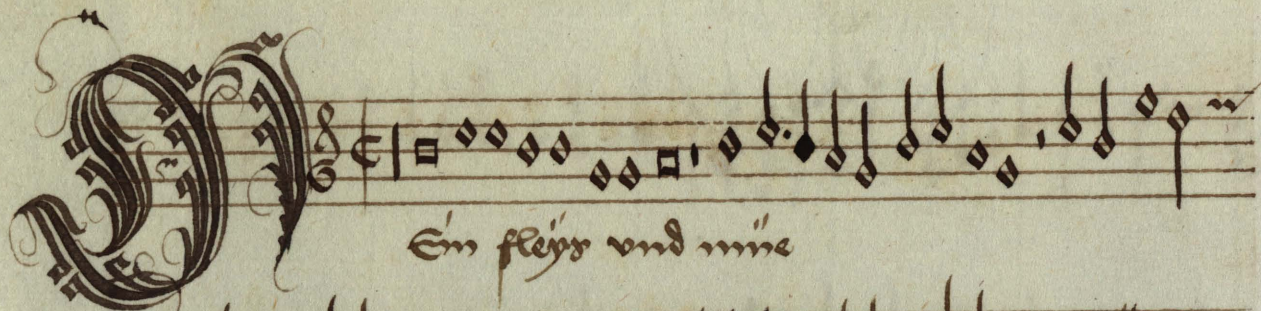 M Ein fleys vnd müe